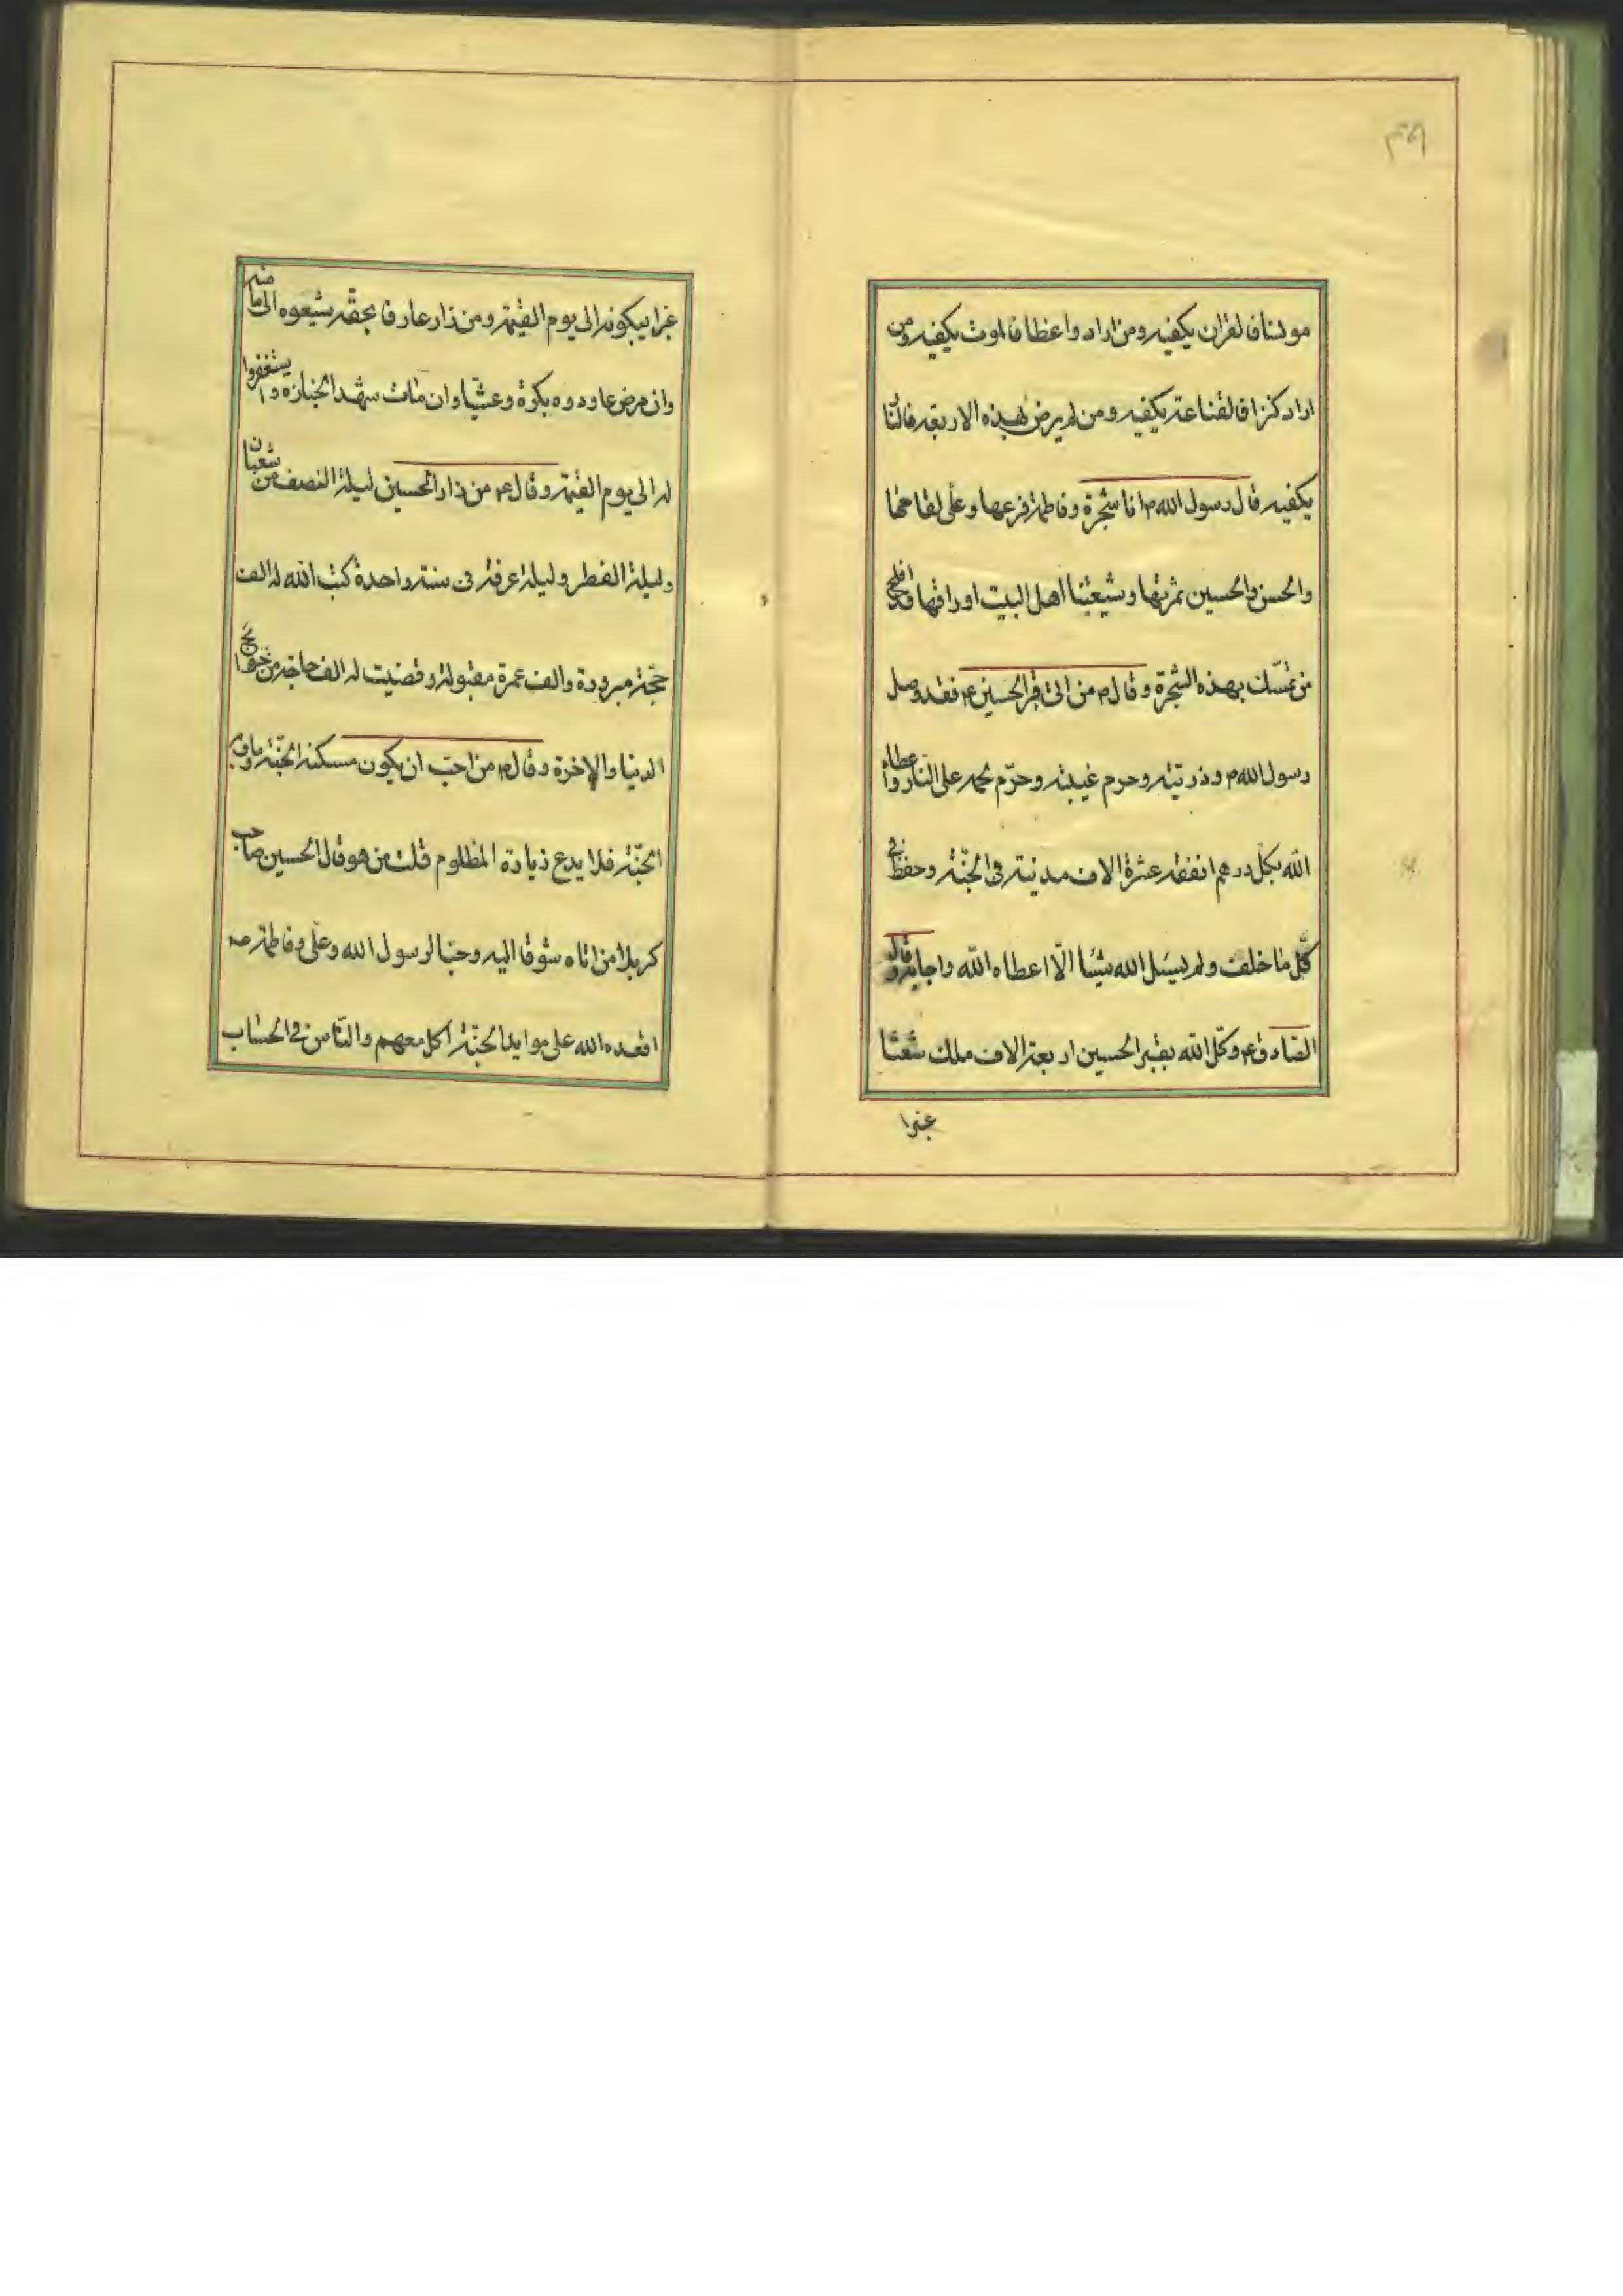 ٣٩
مونسا فالقران يكفيه ومن اراد واعظا فالموت يكفيه ومن
اراد كنزا فالقناعة يكفيه ومن لم يرض بهذه الاربعة فالنا
يكفيه قال رسول الله ص انا شجرة وفاطمة فرعها وعلى لقاحها
والحسن والحسين ثمرتها وشيعتنا اهل البيت اوراقها قد افلح
من تمسك بهذه الشجرة وقال ص من اتى قبر الحسين ع فقد وصل
رسول الله ص وذريته وحرم غيبته وحرّم لحمه على النار واعطاه
الله بكل درهم انفقه عشرة الاف مدينة فى الجنّة وحفظ فى
كلّ ما خلف ولم يسئل الله شيئا الّا اعطاه الله واجابه وقال
الصّادق ع وكّل الله بقبر الحسين اربعة الاف ملك شعثا
غبرا
غبرا يبكونه الى يوم القيمة ومن زار عارفا بحقه شيعوه الى مامنه
وان مرض عاودوه بكرة وعشيّا وان مات شهد الجنازه وا يستغفروا
له الى يوم القيمة وقال ع من زار الحسين ليلة النصف من شعبان
وليلة الفطر وليلة عرفة فى سنة واحدة كتب الله له الف
حجّة مبرورة والف عمرة مقبولة وقضيت له الف حاجة من حوائج
الدنيا والاخرة وقال ص من احبّ ان يكون مسكنه الجنّة وماويه
الجنّة فلا يدع زيارة المظلوم قلت من هو قال الحسين صاحب
كربلا من اتاه شوقا اليه وحبا لرسول الله وعلى وفاطمة عه
اقعده الله على موايد الجنّة اكل معهم والنّاس فى الحساب